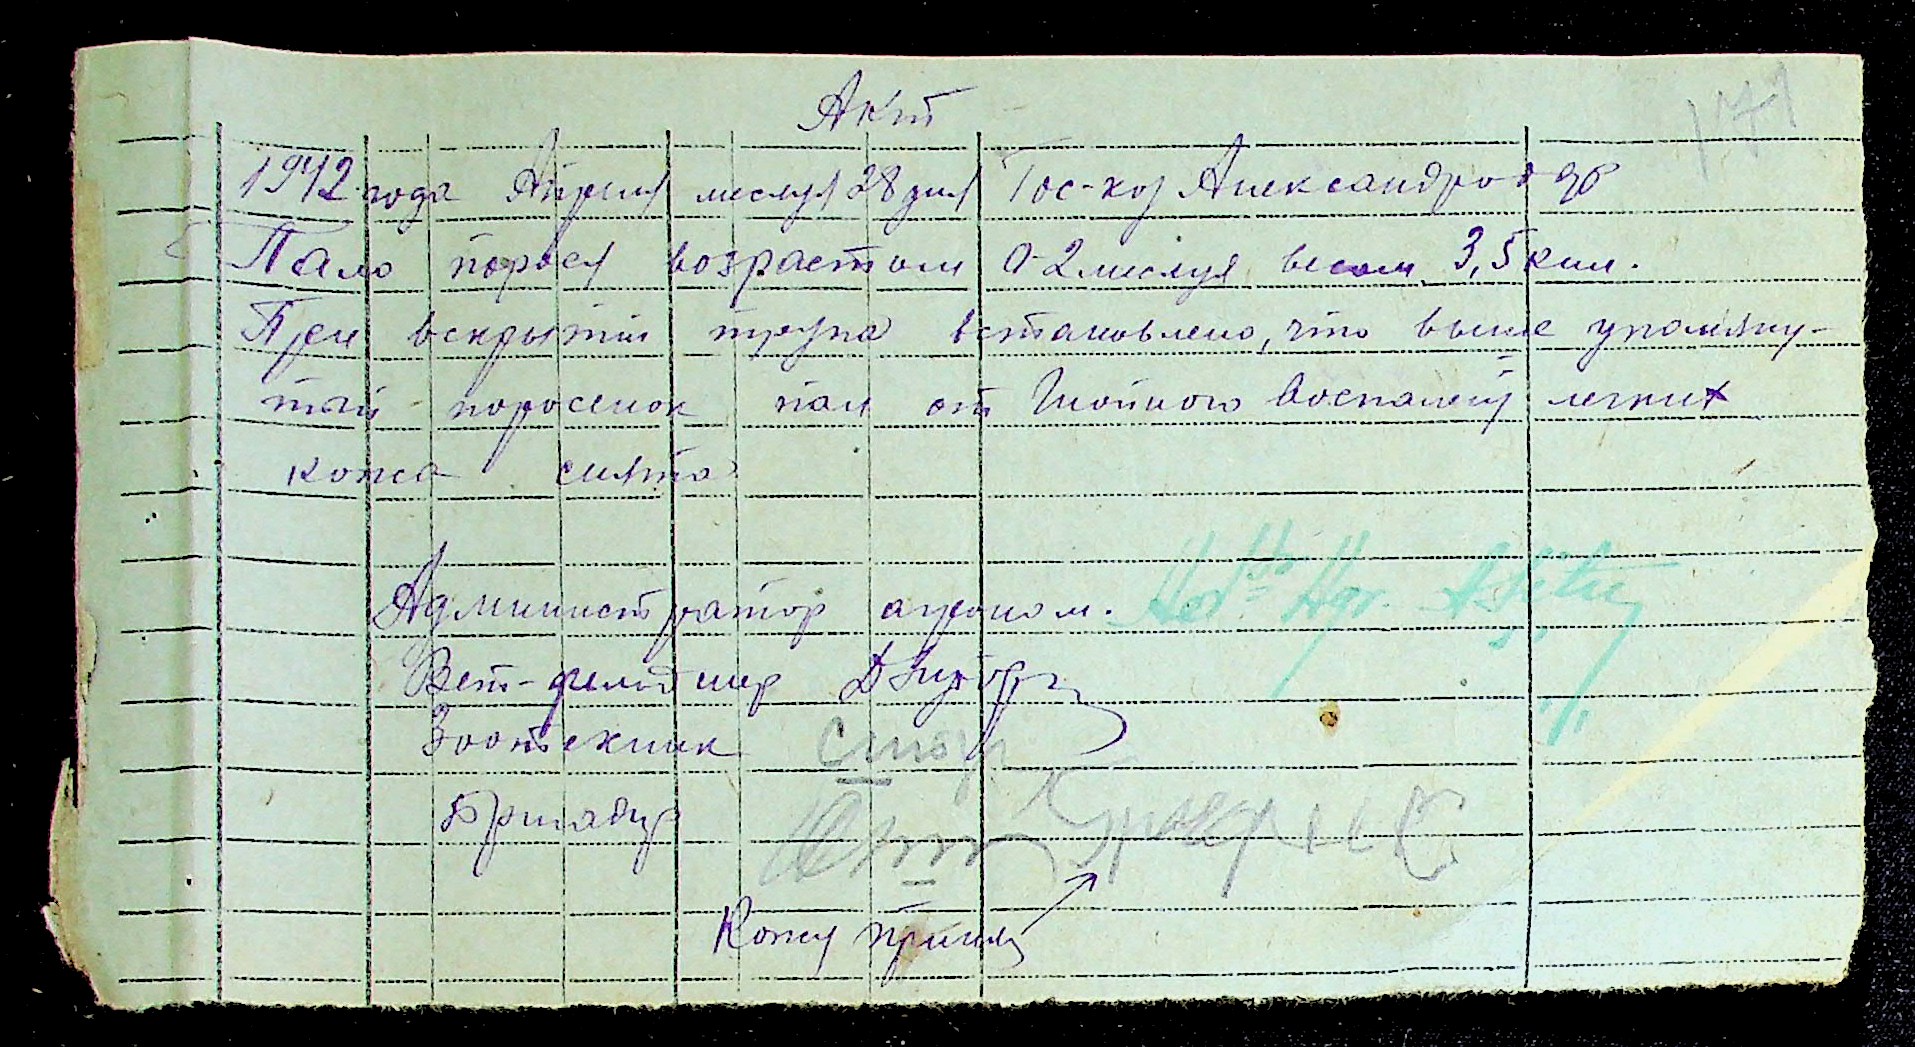 Акт
171
1942 года Апреля месяця 28 дня Гос-хоз Александродар
Пало порося возрастом 0-2 месяця весом 3,5 кил.
При вскрытии трупа встановлено, что выше упомяну-
тый поросенок пал от Гнойного воспаления легких
кожа снята
Администратор агроном.
Вет-фельдшер
Зоотехник
Бригадир
Кожу принял